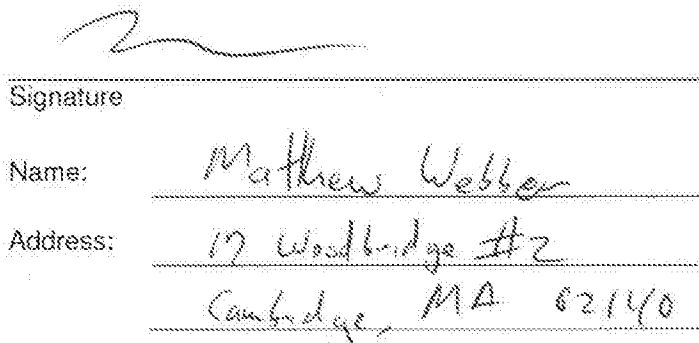 Signature
Name: Matthew Webber
Address: 17 Woodbridge #2
Cambridge, MA 02140